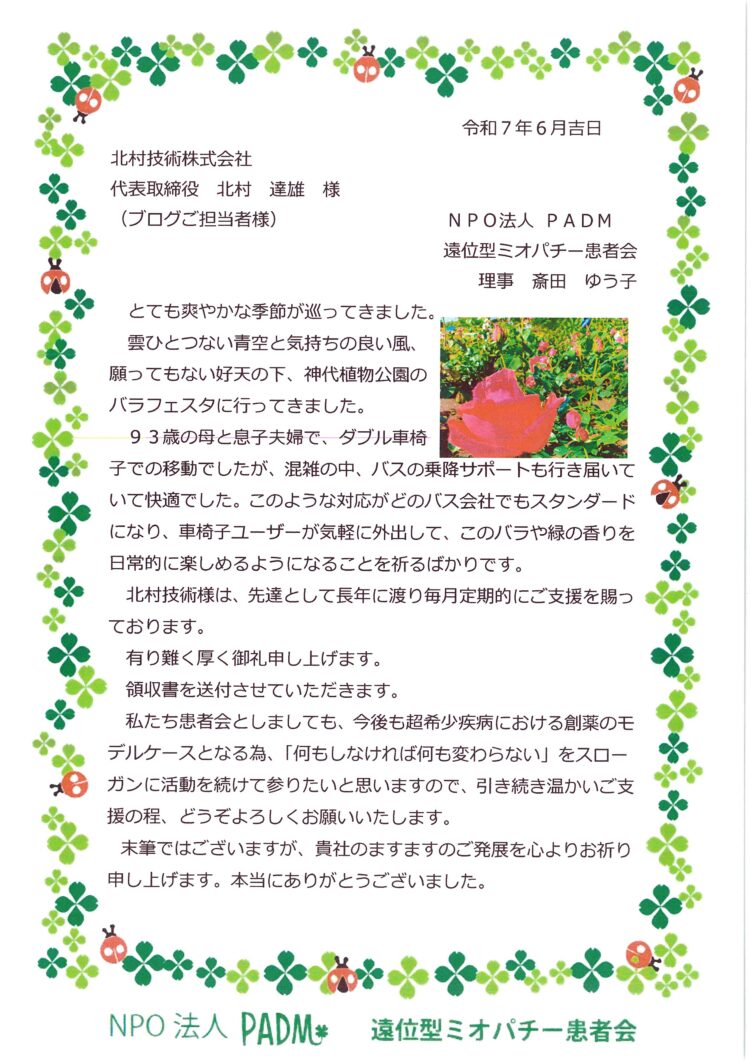 令和７年６月吉日
北村技術株式会社
代表取締役　北村　達雄　様
（ブログご担当者様）
ＮＰＯ法人　ＰＡＤＭ
遠位型ミオパチー患者会
理事　斎田　ゆう子
とても爽やかな季節が巡ってきました。
雲ひとつない青空と気持ちの良い風、
願ってもない好天の下、神代植物公園の
バラフェスタに行ってきました。
９３歳の母と息子夫婦で、ダブル車椅
子での移動でしたが、混雑の中、バスの乗降サポートも行き届いて
いて快適でした。このような対応がどのバス会社でもスタンダード
になり、車椅子ユーザーが気軽に外出して、このバラや緑の香りを
日常的に楽しめるようになることを祈るばかりです。
北村技術様は、先達として長年に渡り毎月定期的にご支援を賜っ
ております。
有り難く厚く御礼申し上げます。
領収書を送付させていただきます。
私たち患者会としましても、今後も超希少疾病における創薬のモ
デルケースとなる為、「何もしなければ何も変わらない」をスロー
ガンに活動を続けて参りたいと思いますので、引き続き温かいご支
援の程、どうぞよろしくお願いいたします。
末筆ではございますが、貴社のますますのご発展を心よりお祈り
申し上げます。本当にありがとうございました。
NPO 法人 PADM 遠位型ミオパチー患者会